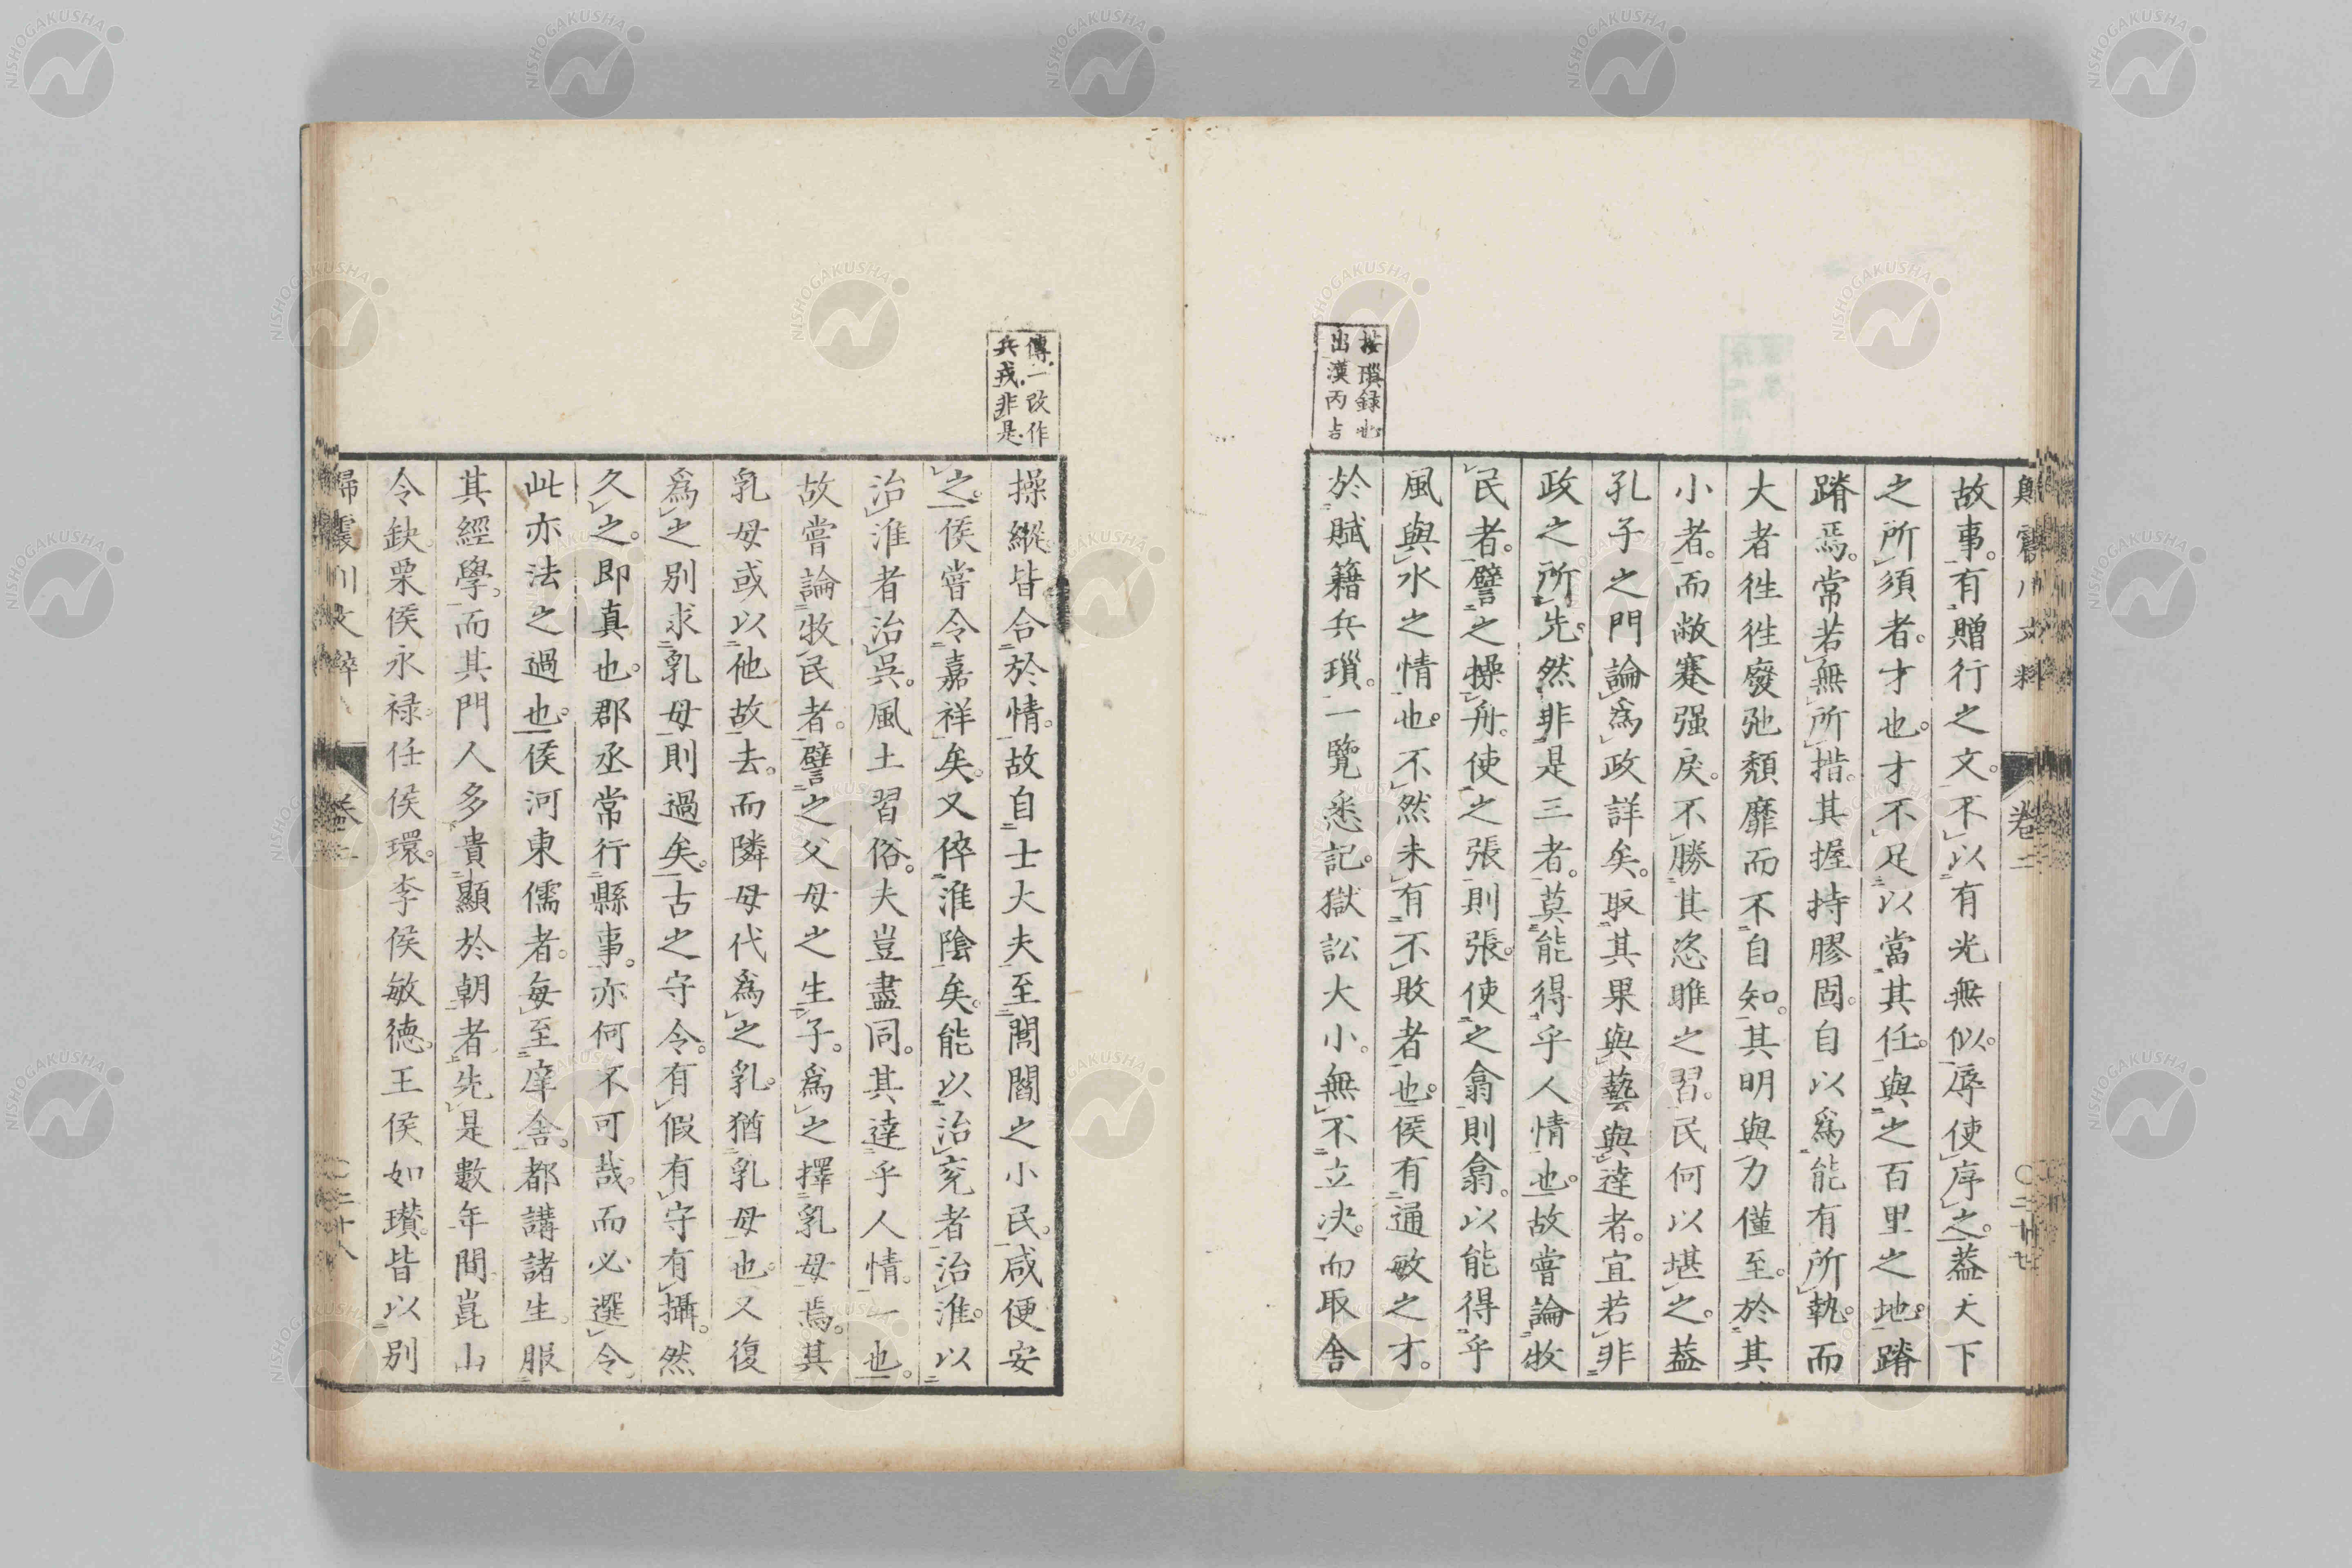 歸震川文粹 卷二 〇二十七
故事。有贈行之文。不以有光無似。辱使序之。葢天下
之所須者。才也。才不足以當其任。與之百里之地。蹐
蹐焉。常若無所措。其握持膠固。自以爲能有所執。而
大者徃徃廢弛頽靡而不自知。其明與力僅至。於其
小者。而敝蹇强戾。不勝其恣睢之習。民何以堪之。葢
孔子之門論爲政詳矣。取其果與藝與達者。宜若非
政之所先。然非是三者。莫能得乎人情也。故嘗論牧
民者。譬之操舟。使之張則張。使之翕則翕。以能得乎
風與水之情也。不然未有不敗者也。侯有通敏之才。
按瑣録也
出漢丙吉
於賦籍兵瑣。一覽悉記。獄訟大小。無不立决。而取舍
傳一改作
兵戎非是
操縱皆合於情。故自士大夫至閭閻之小民。咸便安
之。侯嘗令嘉祥矣。又倅淮陰矣。能以治兖者治淮。以
治淮者治吳。風土習俗。夫豈盡同。其達乎人情。一也。
故嘗論牧民者。譬之父母之生子。爲之擇乳母焉。其
乳母或以他故去。而隣母代爲之乳。猶乳母也。又復
爲之别求乳母則過矣。古之守令。有假有守有攝。然
久之。即真也。郡丞常行縣事。亦何不可哉。而必選令。
此亦法之過也。侯河東儒者。每至庠舍。都講諸生。服
其經學。而其門人多貴顯於朝者。先是數年間崑山
令缺。栗侯永禄。任侯環。李侯敏德。王侯如瓚。皆以别
歸震川文粹 卷二 〇二十八
NISHOGAKUSHA